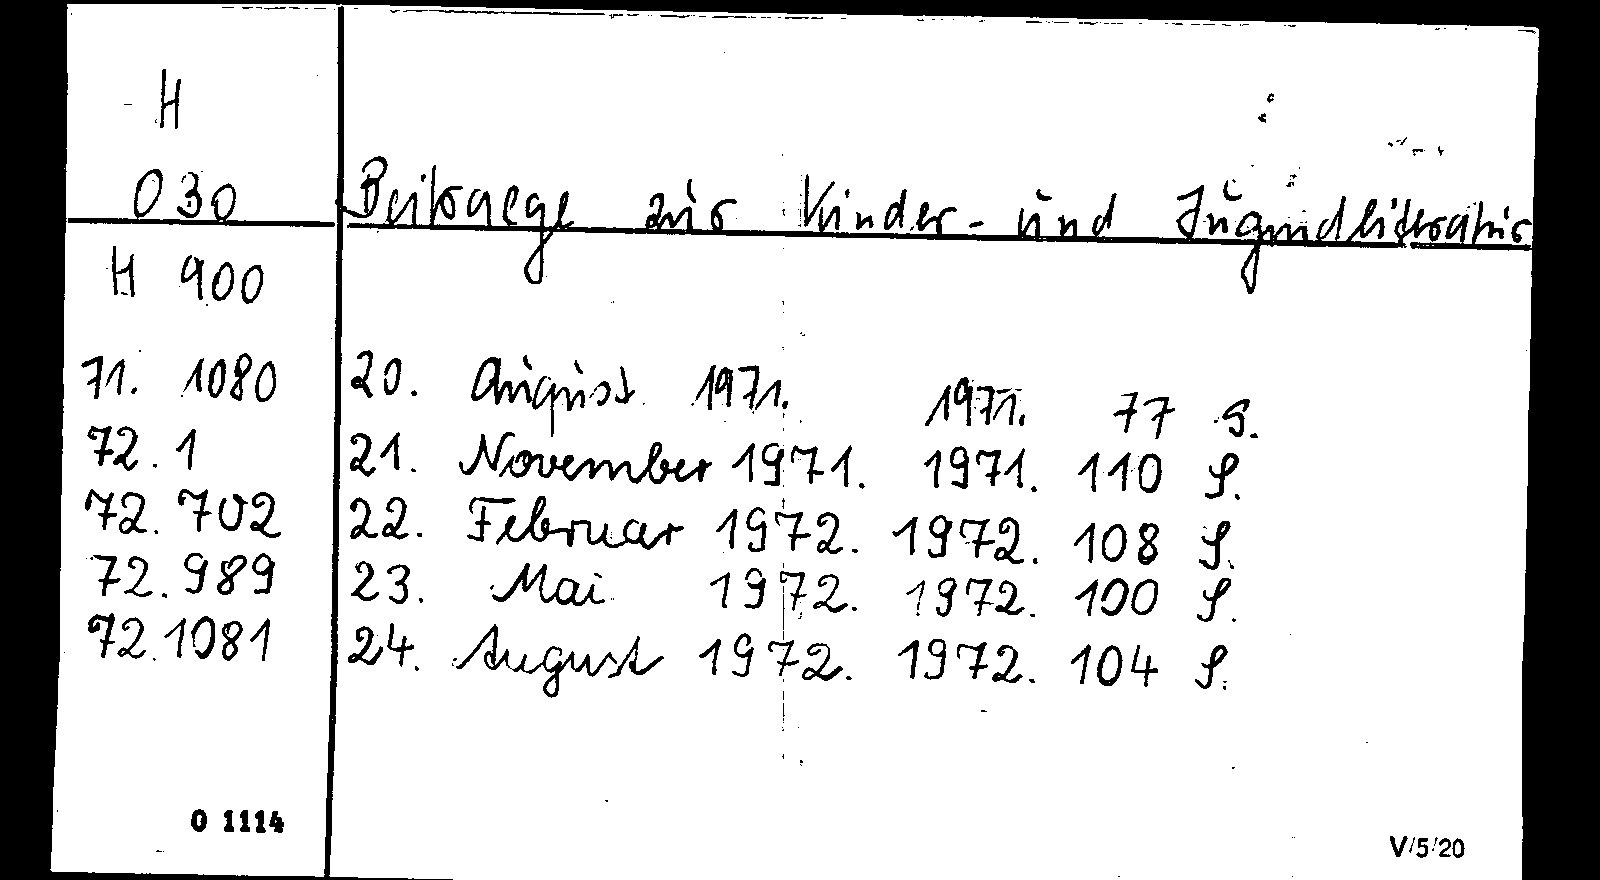 H
030 Beitraege zur Kinder- und Jugendliteratur
H 900
71. 1080 20. August 1971. 1971. 77 S.
72. 1 21. November 1971. 1971. 110 S.
72. 702 22. Februar 1972. 1972. 108 S.
72. 989 23. Mai 1972. 1972. 100 S.
72. 1081 24. August 1972. 1972. 104 S.
O 1114
V/5/20